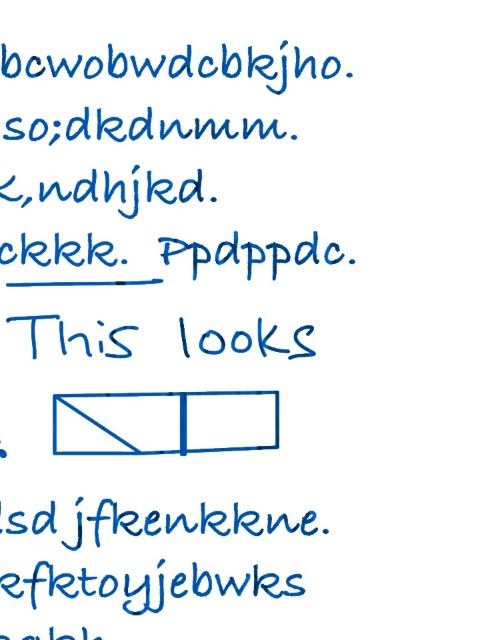 bcwobwdcbkjho.
so;dkdnmm.
,ndhjkd.
ckkk. Ppdppdc.
This looks
lsd jfkenkkne.
kefktoyjebwks